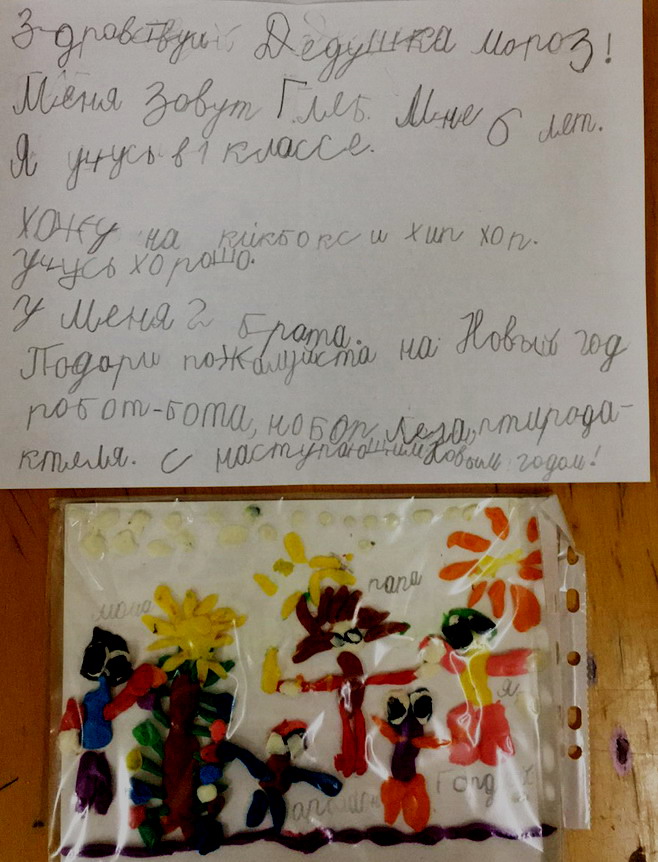 Здравствуй Дедушка мороз!
Меня зовут Глеб. Мне 6 лет.
Я учусь в 1 классе.
Хожу на кикбокс и хип хоп.
Учусь хорошо.
У меня 2 брата.
Подари пожалуйста на Новый год
робот-бота, нобор Лега, птирода-
ктеля. С наступающим Новым годом!
мама
папа
я